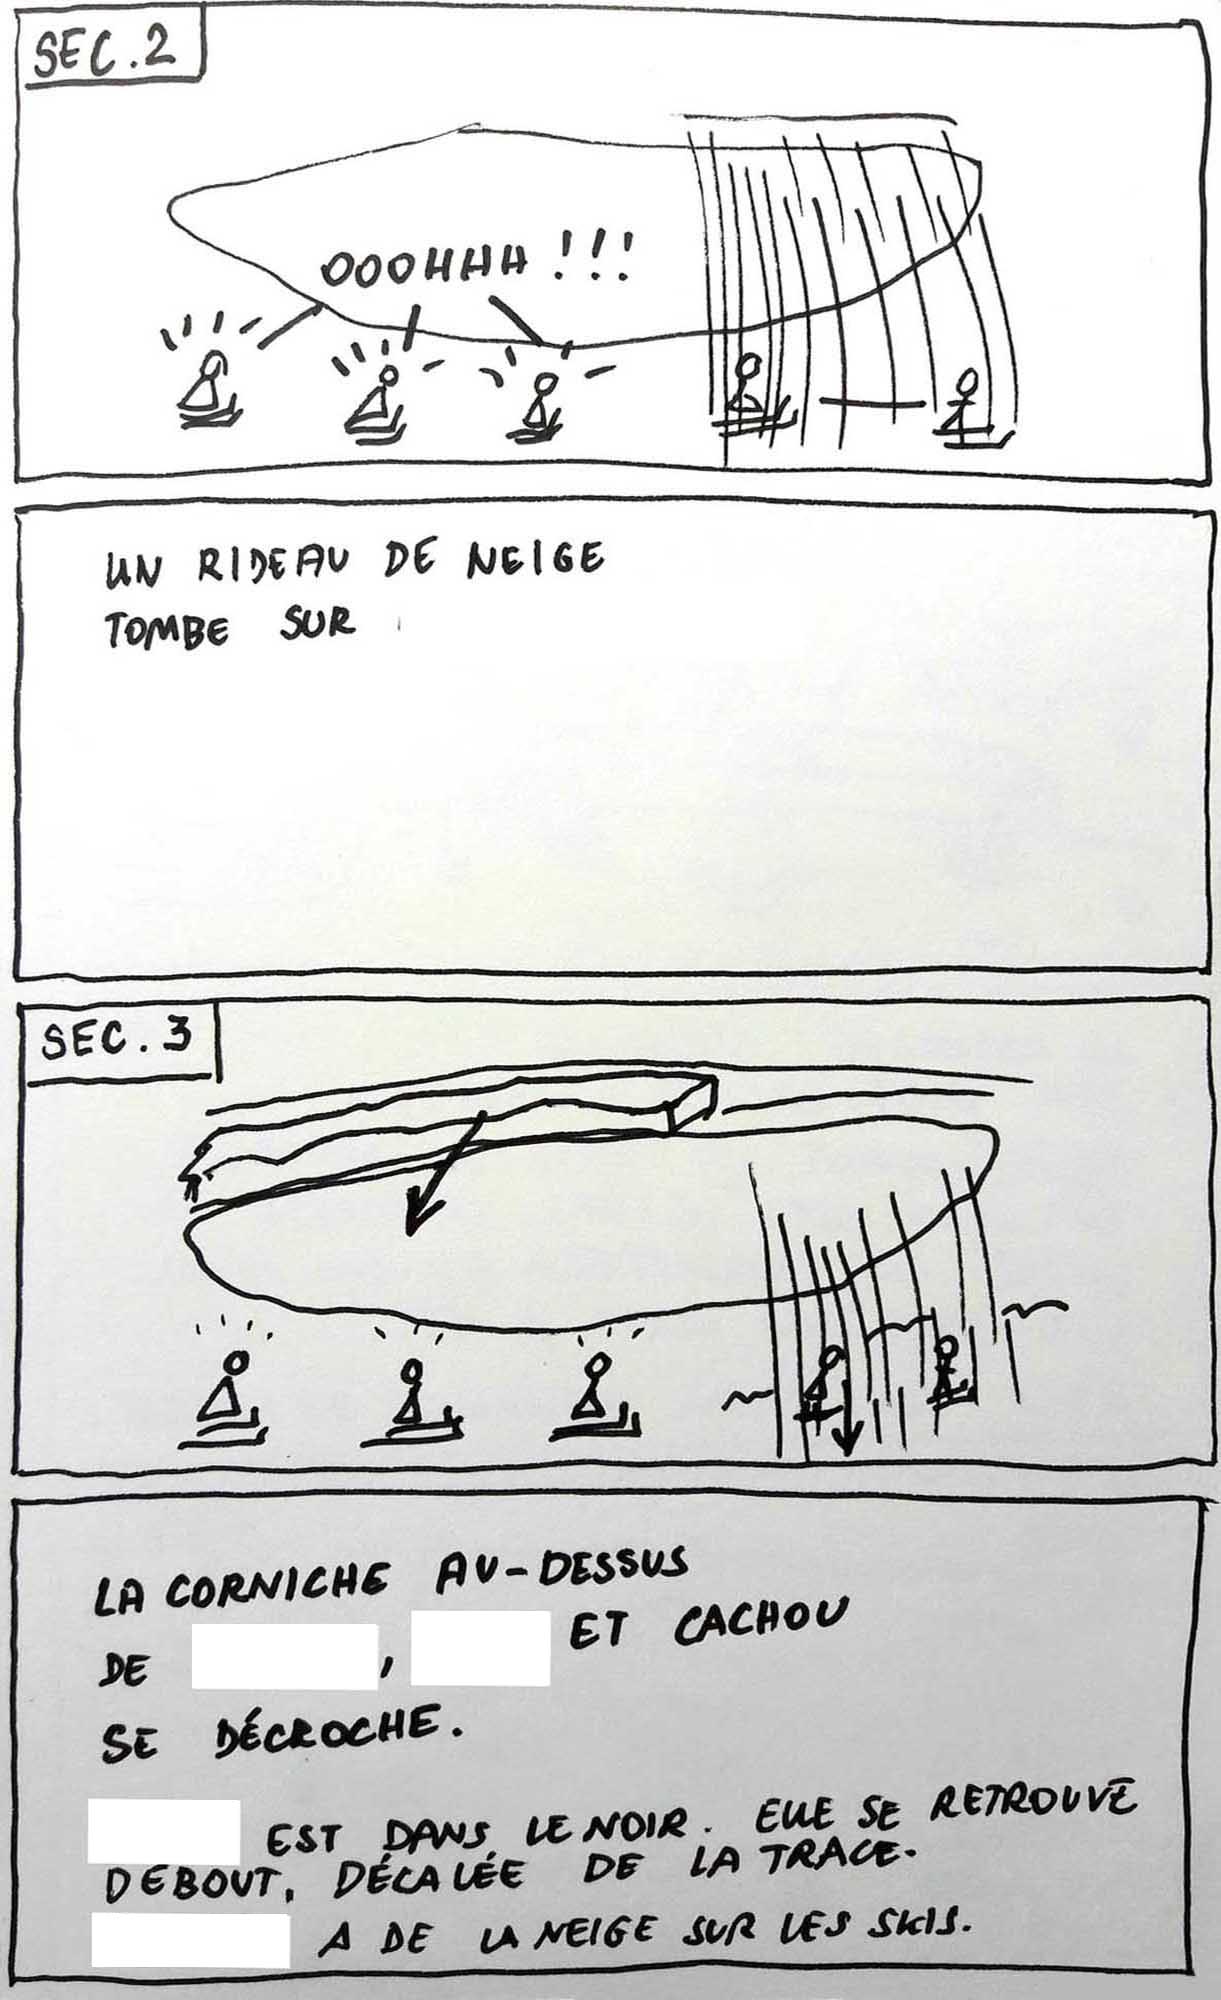 SEC. 2
OOOHHH !!!
UN RIDEAU DE NEIGE
TOMBE SUR
SEC. 3
LA CORNICHE AU-DESSUS
DE , ET CACHOU
SE DÉCROCHE.
EST DANS LE NOIR. ELLE SE RETROUVE
DEBOUT, DÉCALÉE DE LA TRACE.
A DE LA NEIGE SUR LES SKIS.